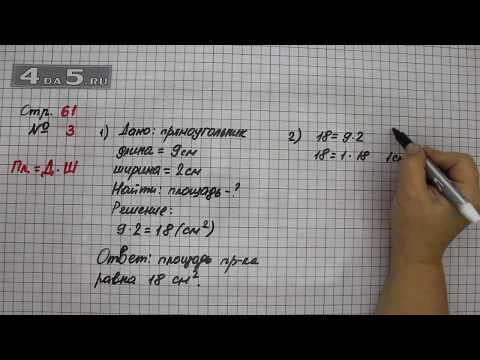 4DA5.RU
Стр. 61
№ 3
Пл. = Д · Ш
1) Дано: прямоугольник
длина = 9 см
ширина = 2 см
Найти: площадь - ?
Решение:
9 · 2 = 18 (см²)
Ответ: площадь пр-ка
равна 18 см².
2) 18 = 9 · 2
18 = 1 · 18 1 см